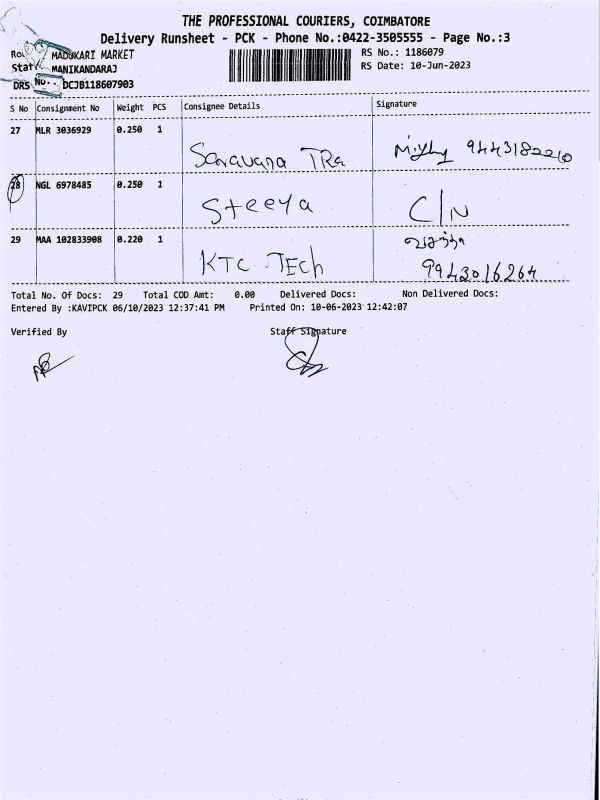 THE PROFESSIONAL COURIERS, COIMBATORE
Delivery Runsheet - PCK - Phone No.:0422-3505555 - Page No.:3
MADUKARI MARKET RS No.: 1186079
MANIKANDARAJ RS Date: 10-Jun-2023
DRS No.. DCJB118607903
S No Consignment No Weight PCS Consignee Details Signature
27 MLR 3036929 0.250 1 Saravana TRa 9443182210
28 NGL 6978485 0.250 1 Steeya C/N
29 MAA 102833908 0.220 1 KTC TECh வசந்த 9943016264
Total No. Of Docs: 29 Total COD Amt: 0.00 Delivered Docs: Non Delivered Docs:
Entered By :KAVIPCK 06/10/2023 12:37:41 PM Printed On: 10-06-2023 12:42:07
Verified By Staff Signature